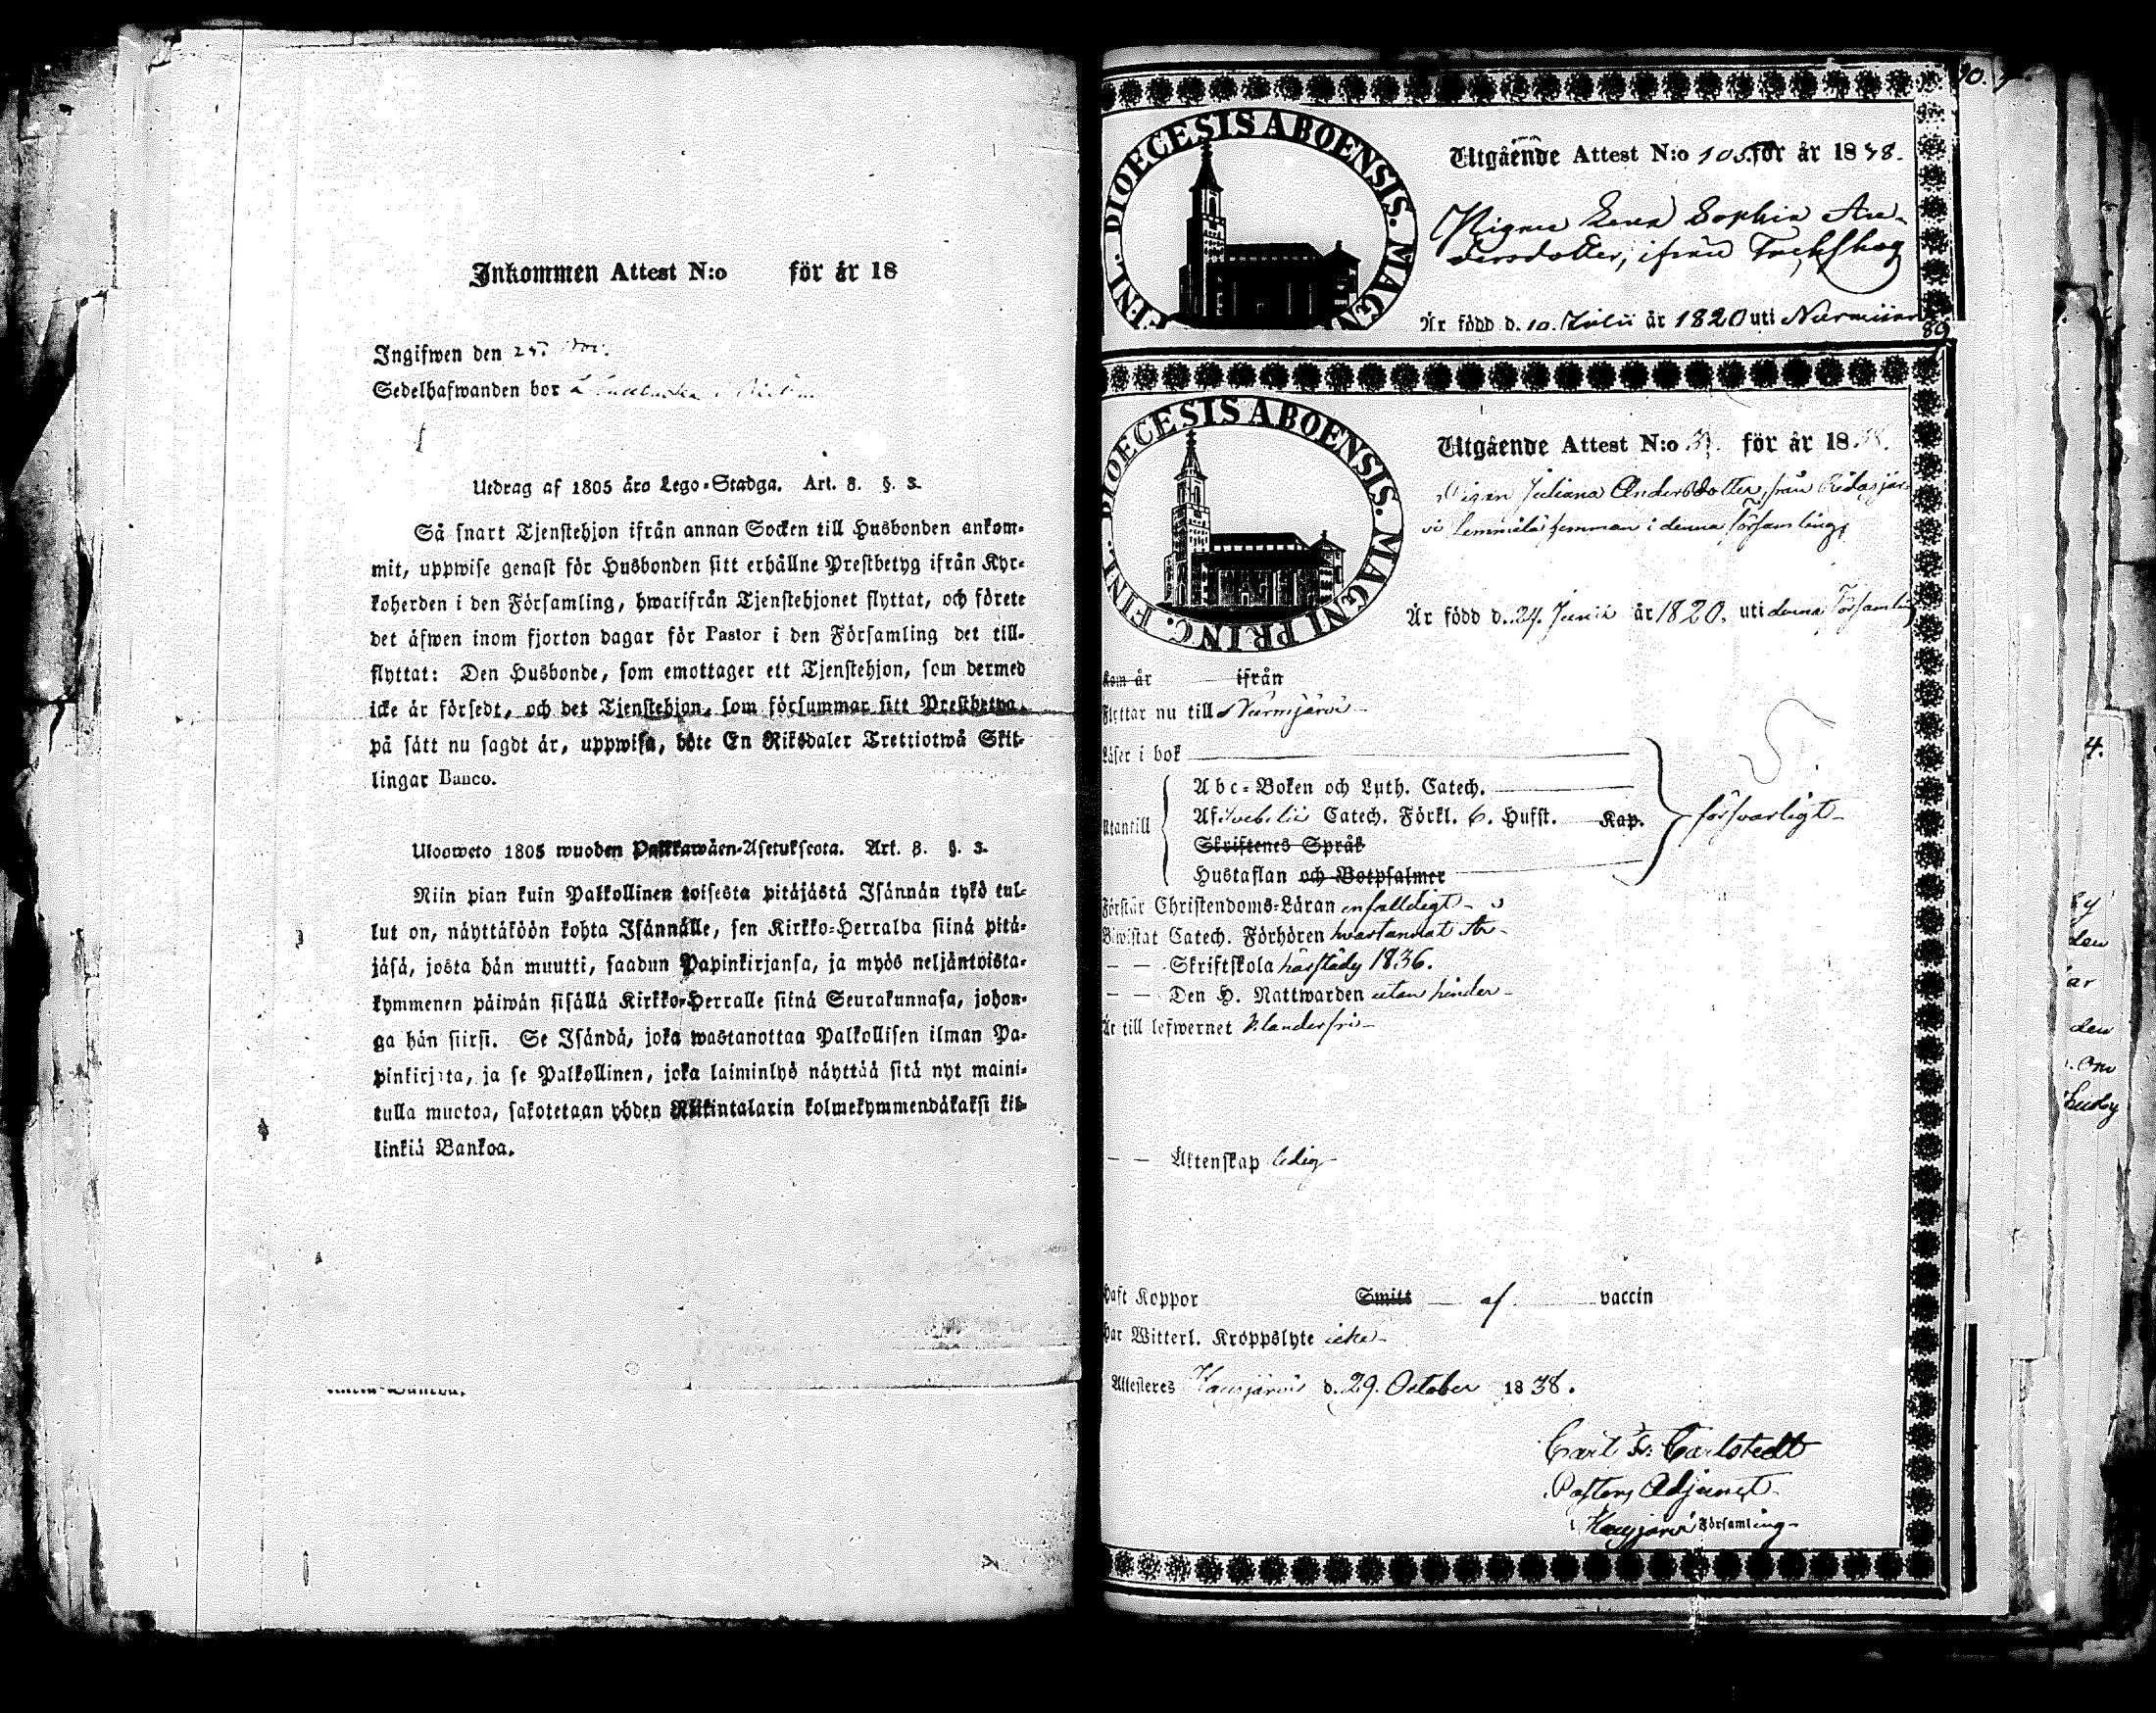 Inkommen Attest N:o för år 18
Ingifwen den 25. Nov.
Sedelhafwanden bor
Utdrag af 1805 års Lego-Stadga. Art. 8. §. 3.
Så snart Tjenstehjon ifrån annan Socken till Husbonden ankom-
mit, uppwise genast för Husbonden sitt erhållne Prestbetyg ifrån Kyr-
koherden i den Församling, hwarifrån Tjenstehjonet flyttat, och förete
det äfwen inom fjorton dagar för Pastor i den Församling det till-
flyttat: Den Husbonde, som emottager ett Tjenstehjon, som dermed
icke är försedt, och det Tjenstehjon, som försummar sitt Prestbetyg,
på sätt nu sagdt är, uppwisa, böte En Riksdaler Trettiotwå Skil-
lingar Banco.
Ulosweto 1805 wuoden Palkkawäen-Asetuksesta. Art. 8. §. 3.
Niin pian kuin Palkollinen toisesta pitäjästä Isännän tykö tul-
lut on, näyttäköön kohta Isännälle, sen Kirkko-Herralda siinä pitä-
jäsä, josta hän muutti, saadun Papinkirjansa, ja myös neljäntoista-
kymmenen päiwän sisällä Kirkko-Herralle siinä Seurakunnasa, johon-
ga hän siirsi. Se Isändä, joka wastanottaa Palkollisen ilman Pa-
pinkirjata, ja se Palkollinen, joka laiminlyö näyttää sitä nyt maini-
tulla muotoa, sakotetaan yhden Riikintalarin kolmekymmendäkaksi kil-
linkiä Bankoa.
FINL. DIOECESIS ABOENSIS. MAGN
Utgående Attest N:o 105. för år 1838.
Pigan Lena Sophia An-
dersdotter, ifrån Träskskog
Är född d. 10. Julii år 1820 uti Nurmijärvi
89
DIOECESIS ABOENSIS. MAGNI PRINC. FINL.
Utgående Attest N:o för år 1838.
Pigan Juliana Andersdotter, från Ridasjär-
vi Lemmilä hemman i denna församling,
Är född d. 24. Junii år 1820. uti denna Församling
Kom år ifrån
Flyttar nu till Nurmijärvi
Läser i bok
Utantill
Abc-Boken och Luth. Catech.
Af Svebilii Catech. Förkl. 6. Hufst. Kap.
Skriftenes Språk
Hustaflan och Botpsalmer
försvarligt
Förstår Christendoms-Läran enfalldigt
Biwistat Catech. Förhören hvartannat År
— — Skriftskola härstädes 1836.
— — Den H. Nattwarden utan hinder
Är till lefwernet klanderfri
— — Äktenskap ledig
Haft Koppor Smitt af vaccin
Har Witterl. Kroppslyte icke
Attesteres Hausjärvi d. 29. October 1838.
Carl Fr. Carlstedt
Pastors Adjunct
i Hausjärvi Församling